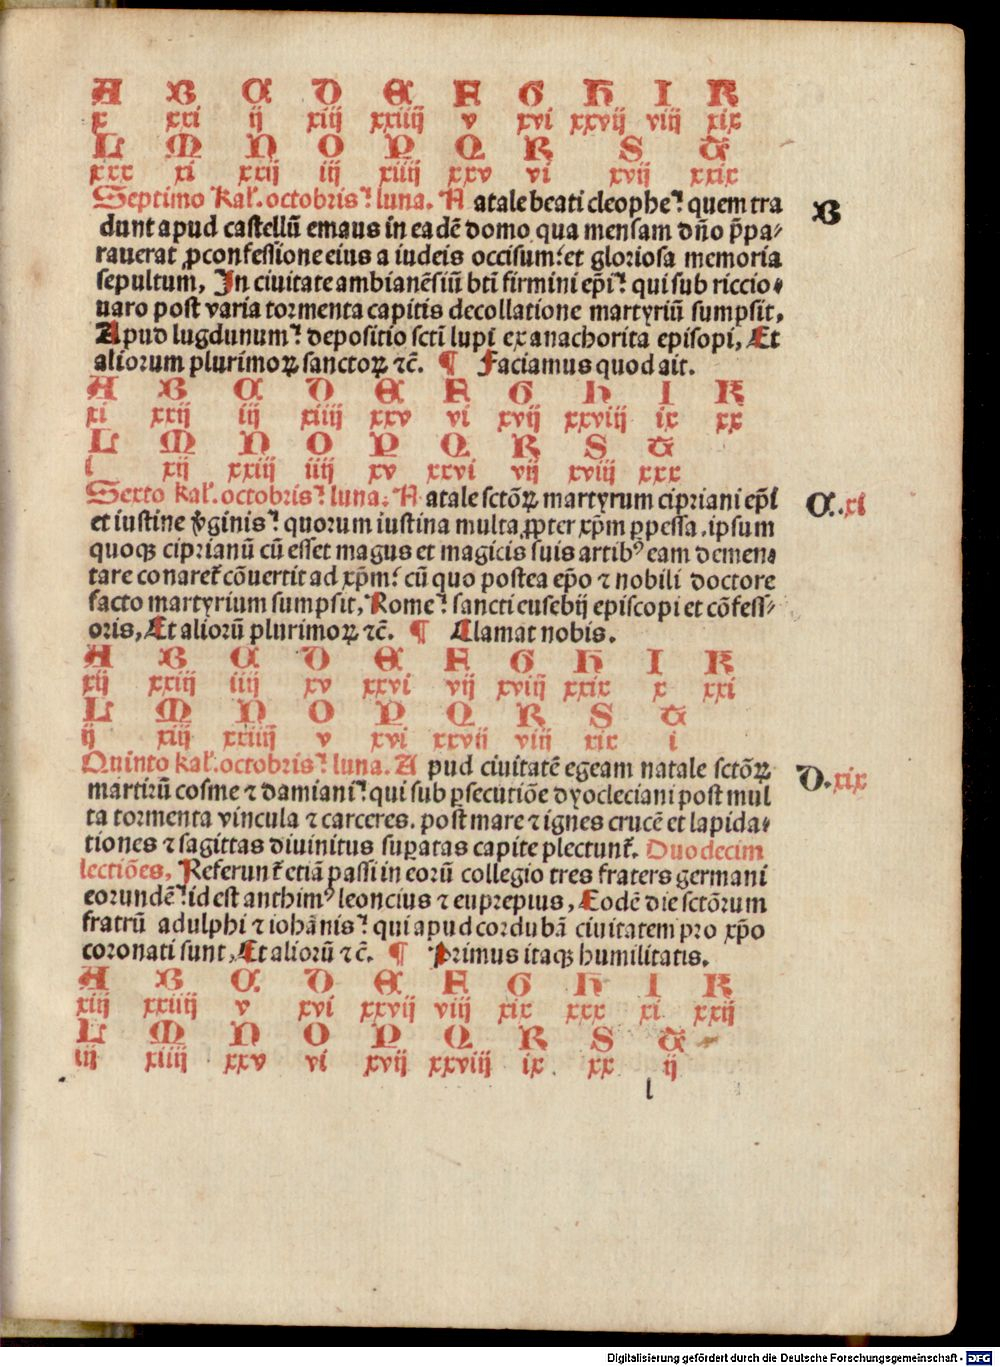 A B C D E F G H I K
x xxi ij xiij xxiiij v xvi xxvij viij xix
L M N O P Q R S T
xxx xi xxij iij xiiij xxv vi xvij xxix
Septimo kal̓. octobris⸵ luna. N atale beati cleophe⸵ quem tra B
dunt apud castellū emaus in eadē domo qua mensam dn̄o p̄pa⸗
rauerat ꝓ confessione eius a iudeis occisum⸵ et gloriosa memoria
sepultum, In ciuitate ambianēsiū bt̄i firmini ep̄i⸵ qui sub riccio⸗
uaro post varia tormenta capitis decollatione martyriū sumpsit,
Apud lugdunum⸵ depositio sct̄i lupi ex anachorita episopi, Et
aliorum plurimoꝝ sanctoꝝ ⁊c̄. ¶ Faciamus quod ait.
A B C D E F G H I K
xi xxij iij xiiij xxv vi xvij xxviij ix xx
L M N O P Q R S T
i xij xxiij iiij xv xxvi vij xviij xxx
Sexto kal̓. octobris⸵ luna: N atale sctōꝝ martyrum cipriani ep̄i C.xi
et iustine v̓ginis⸵ quorum iustina multa ꝓpter xp̄m ꝑpessa. ipsum
quoqꝫ ciprianū cū esset magus et magicis suis artibꝰ eam demen⸗
tare conaret̓ cōuertit ad xp̄m⸵ cū quo postea ep̄o ⁊ nobili doctore
facto martyrium sumpsit, Rome⸵ sancti eusebij episcopi et cōfess⸗
oris, Et aliorū plurimoꝝ ⁊c̄. ¶ Clamat nobis.
A B C D E F G H I K
xij xxiij iiij xv xxvi vij xviij xxix x xxi
L M N O P Q R S T
ij xiij xxiiij v xvi xxvij viij xix i
Quinto kal̓. octobris⸵ luna. A pud ciuitatē egeam natale sctōꝝ D.xix
martirū cosme ⁊ damiani⸵ qui sub ꝑsecutiōe dyocleciani post mul
ta tormenta vincula ⁊ carceres. post mare ⁊ ignes crucē et lapida⸗
tiones ⁊ sagittas diuinitus suꝑatas capite plectunt̓. Duodecim
lectiōes, Referunt̓ etiā passi in eorū collegio tres fraters germani
eorundē⸵ id est anthimꝰ leoncius ⁊ euprepius, Eodē die sctōrum
fratrū adulphi ⁊ iohānis⸵ qui apud cordubā ciuitatem pro xp̄o
coronati sunt, Et aliorū ⁊c̄. ¶ Primus itaqꝫ humilitatis.
A B C D E F G H I K
xiij xxiiij v xvi xxvij viij xix xxx xi xxij
L M N O P Q R S T
iij xiiij xxv vi xvij xxviij ix xx ij
l
Digitalisierung gefördert durch die Deutsche Forschungsgemeinschaft - DFG